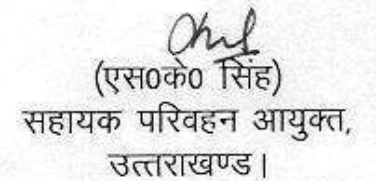 (एस0के0 सिंह)
सहायक परिवहन आयुक्त,
उत्तराखण्ड।